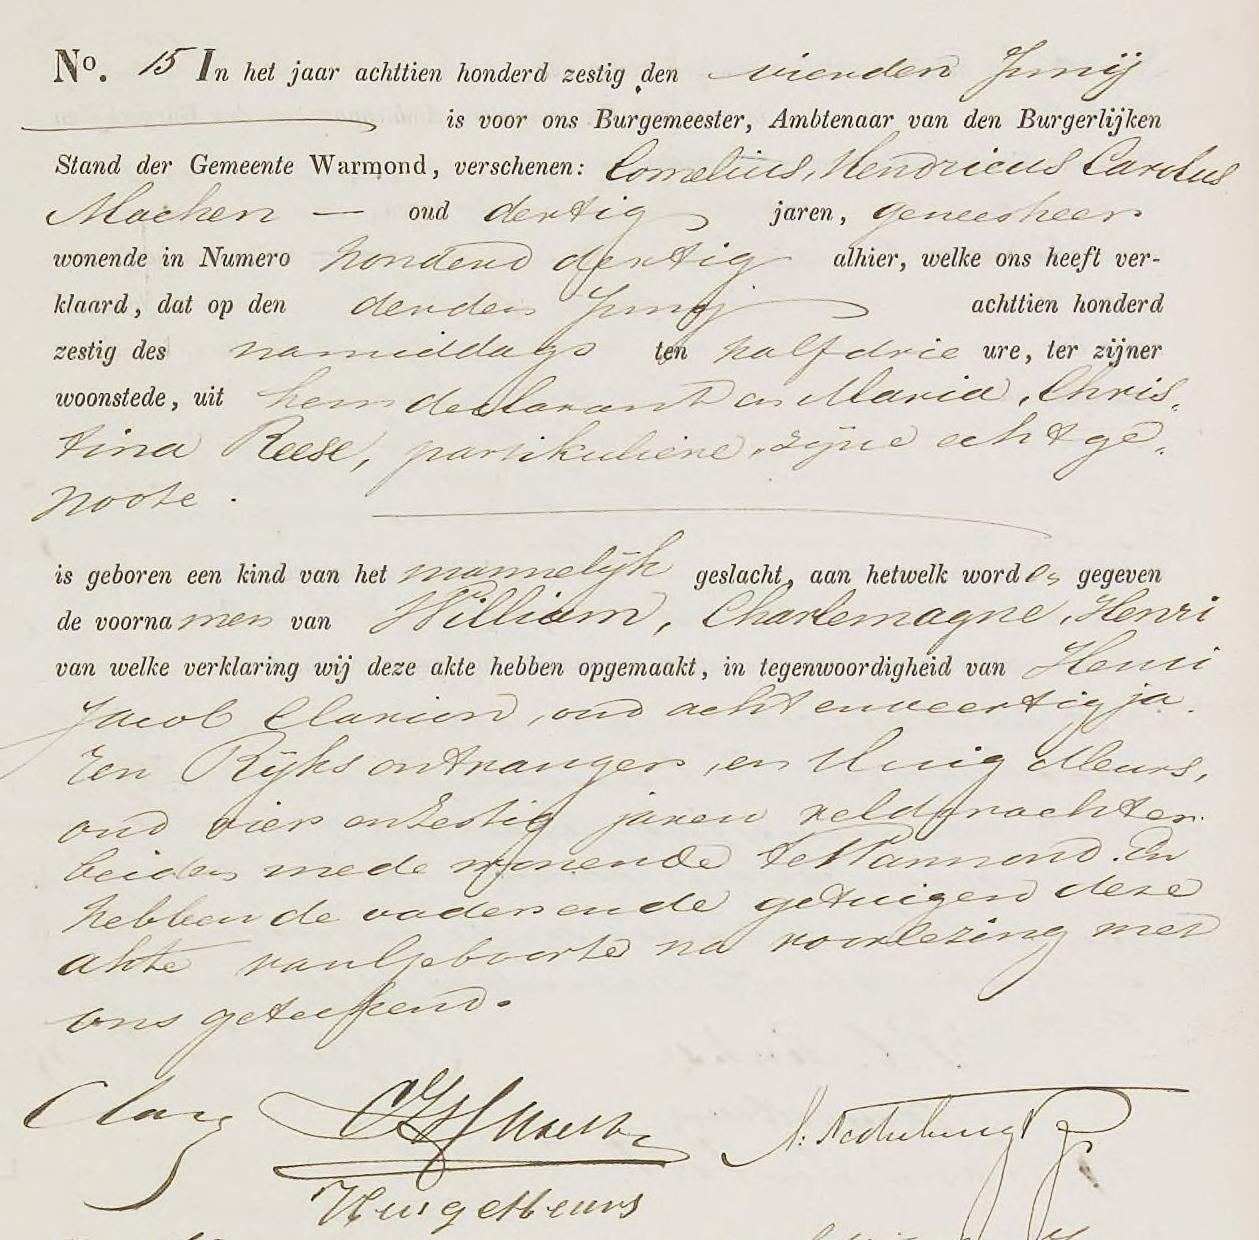 No. 15 In het jaar achttien honderd zestig den vierden Junij
is voor ons Burgemeester, Ambtenaar van den Burgerlijken
Stand der Gemeente Warmond, verschenen: Cornelius, Hendricus Carolus
Machen — oud dertig jaren, geneesheer
wonende in Numero honderd dertig alhier, welke ons heeft ver-
klaard, dat op den derden Junij achttien honderd
zestig des namiddags ten half drie ure, ter zijner
woonstede, uit hem declarant en Maria, Chris„
tina Reese, partikuliere, zijne echtge„
noote.
is geboren een kind van het mannelijk geslacht, aan hetwelk worden gegeven
de voornamen van William, Charlemagne, Henri
van welke verklaring wij deze akte hebben opgemaakt, in tegenwoordigheid van Henri
Jacob Clarion, oud acht en veertig ja„
ren Rijks ontvanger, en Huig Meurs,
oud vier en zestig jaren veldwachter.
beiden mede wonende te Warmond. En
hebben de vader en de getuigen deze
akte van geboorte na voorlezing met
ons geteekend.
Huig Meurs